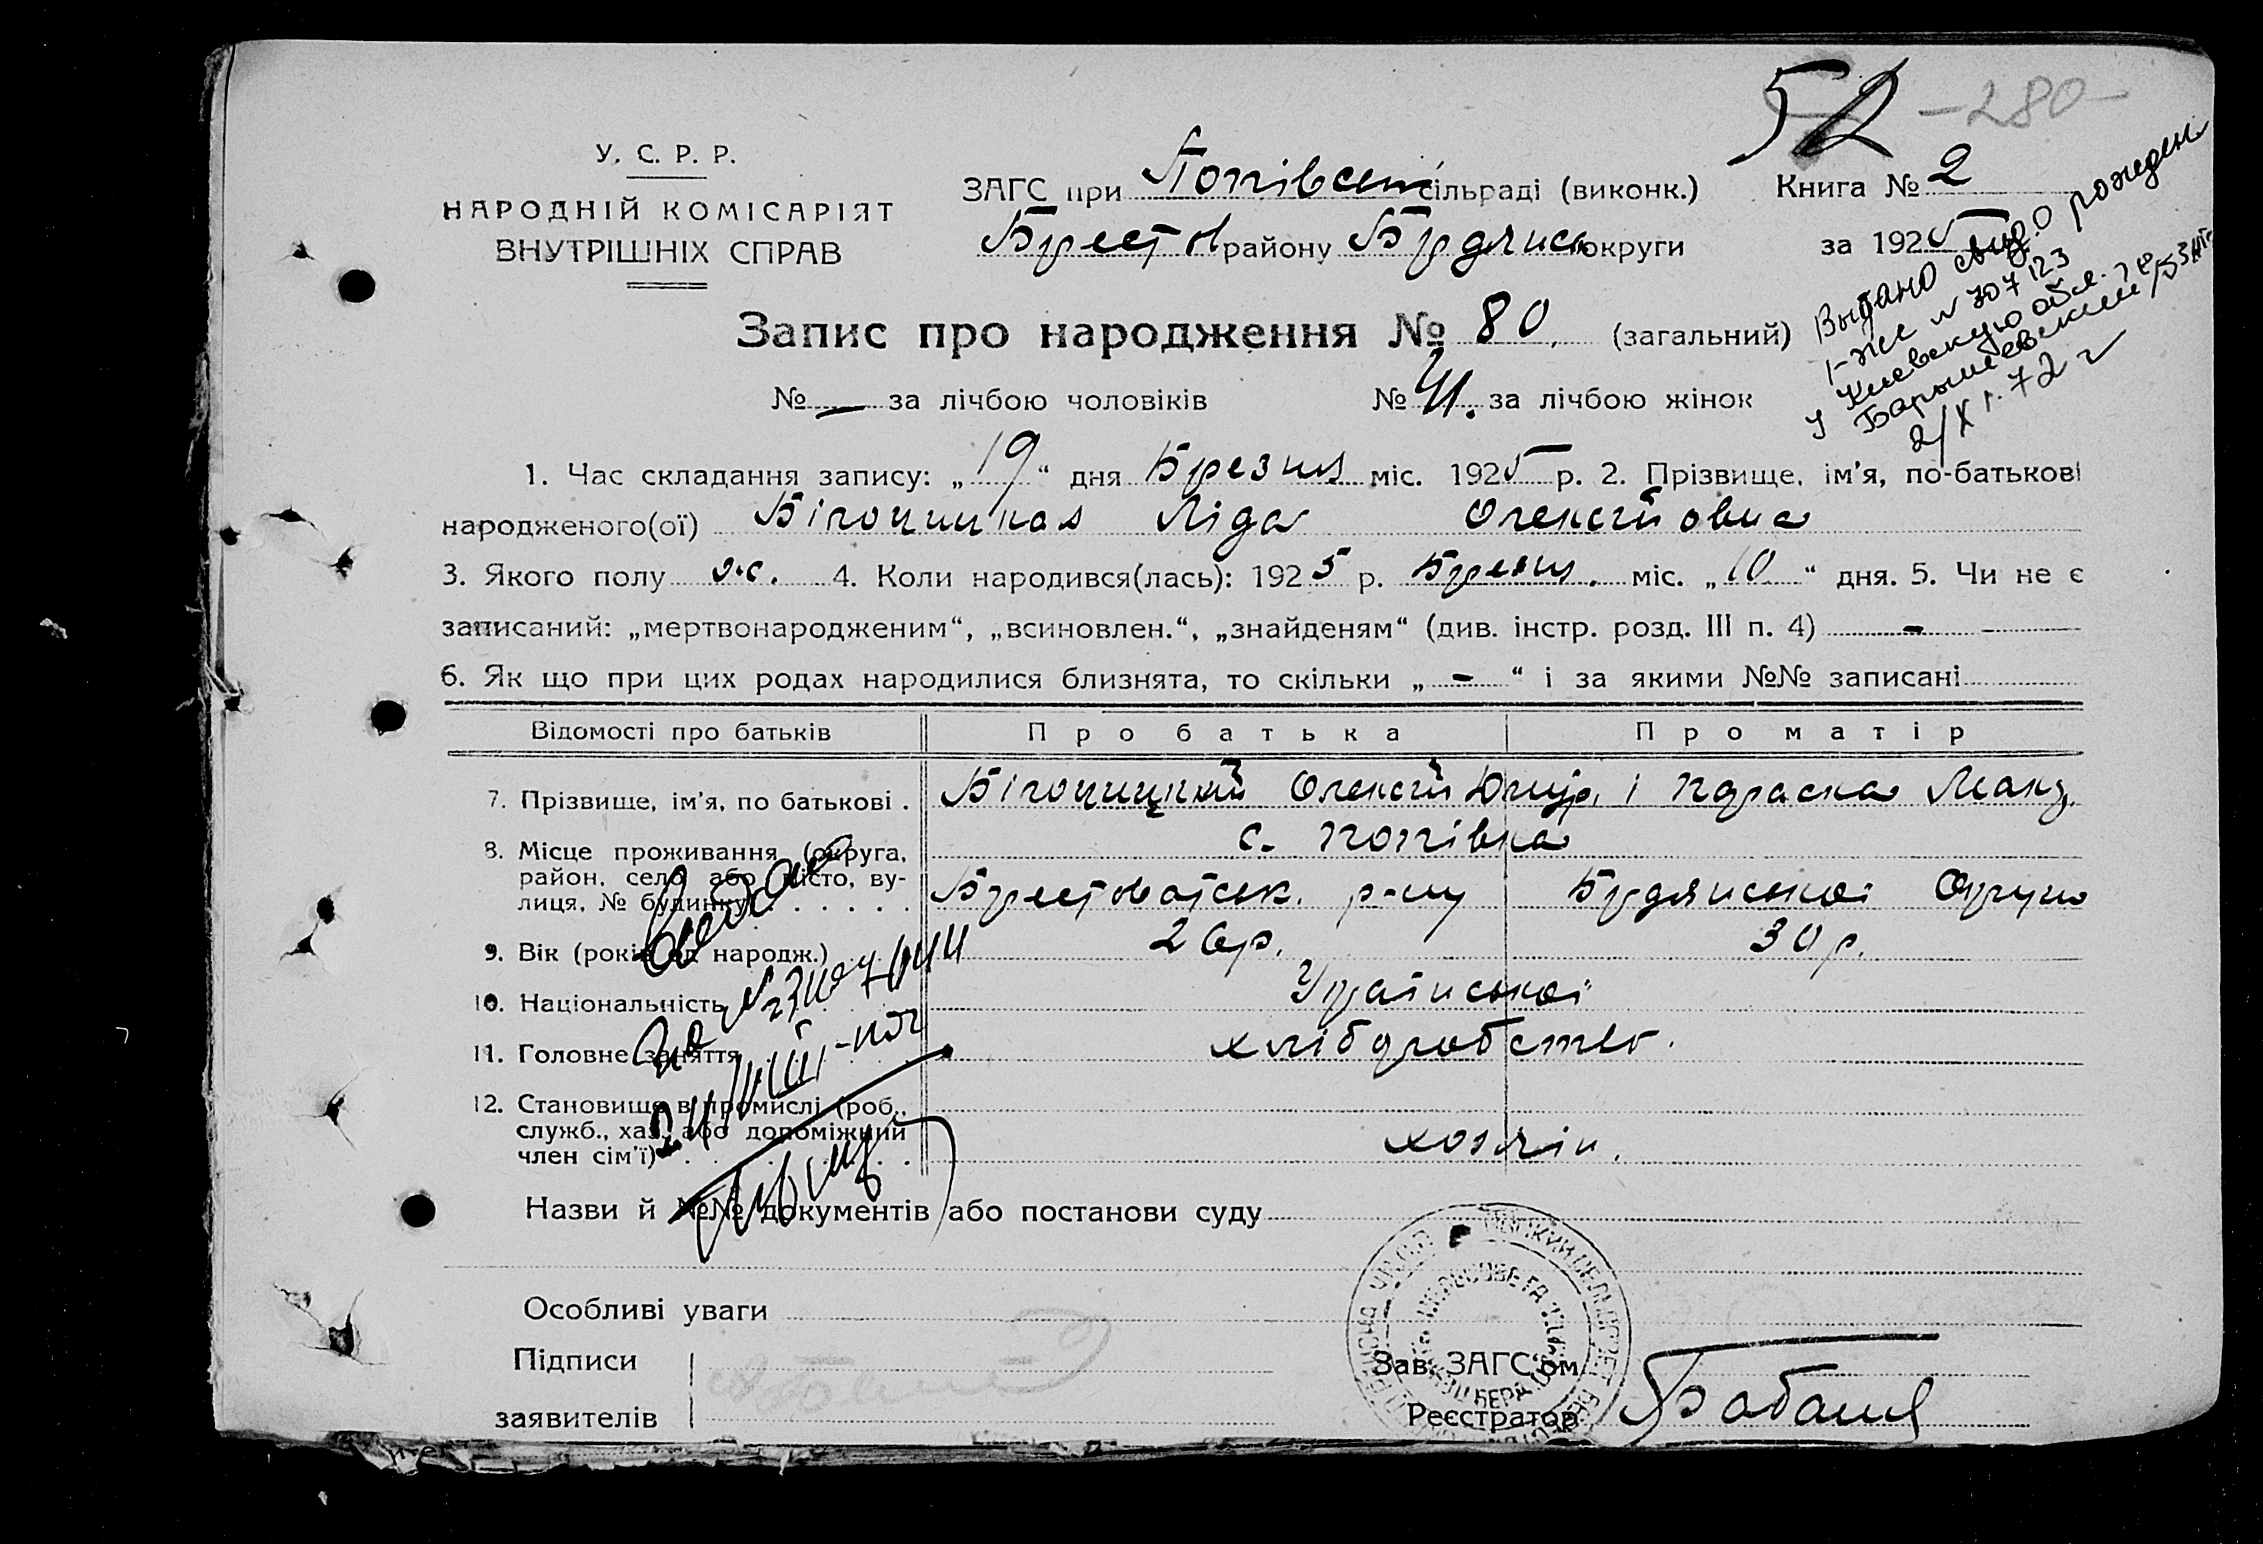 52 -280-
У. С. Р. Р.
НАРОДНІЙ КОМІСАРІЯТ
ВНУТРІШНІХ СПРАВ
ЗАГС при Попівськ сільраді (виконк.) Книга № 2
Брестов району Бердянськ округи за 1925
Выдано свид. о рожден.
1-ЖС № 707123
у Киевскую обл.
Барышевский
2/X г. 72 г
Запис про народження № 80. (загальний)
№ — за лічбою чоловіків № 41. за лічбою жінок
1. Час складання запису: „19“ дня Березня міс. 1925 р. 2. Прізвище, ім'я, по-батькові
народженого(ої) Білочицкая Ліда Олексійовна
3. Якого полу ж. 4. Коли народився(лась): 1925 р. Березн. міс. „10“ дня. 5. Чи не є
записаний: „мертвонародженим“, „всиновлен.“, „знайденям“ (див. інстр. розд. III п. 4) -
6. Як що при цих родах народилися близнята, то скільки „-“ і за якими №№ записані
Відомості про батьків Про батька Про матір
7. Прізвище, ім'я, по батькові . Білочицкий Олексій Дмитр. і Параска Макс.
8. Місце проживання (округа, с. Попівка
район, село або місто, ву-
лиця, № будинку) Брестоватськ. р-ну Бердянської Округи
9. Вік (років од народж.) 26р. 30р.
10. Національність Української
11. Головне заняття хліборобство.
12. Становище в промислі (роб.,
служб., хаз. або допоміжний
член сім'ї) хозяін.
Назви й №№ документів або постанови суду
Особливі уваги
Підписи
заявителів
Зав. ЗАГС'ом
Реєстратор